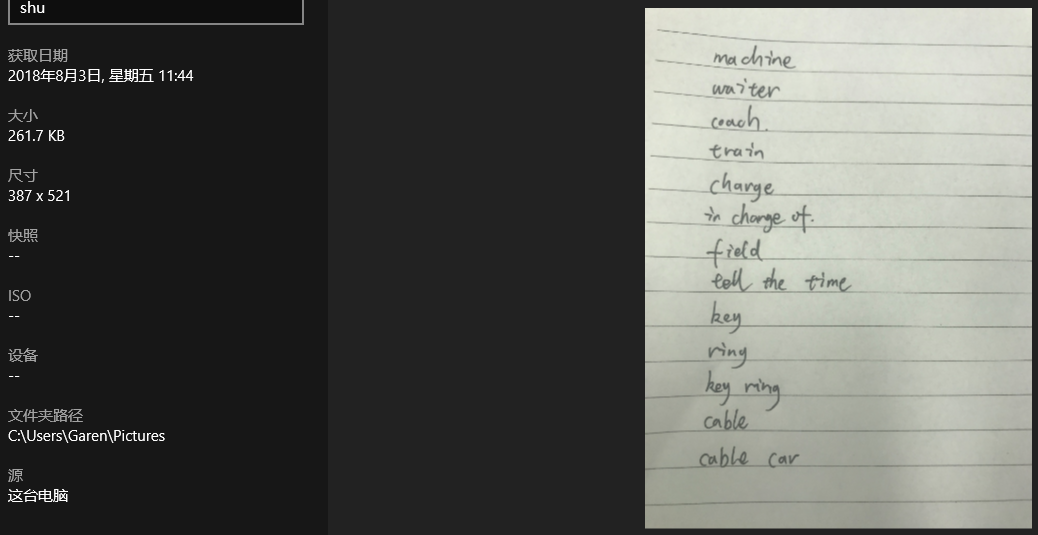 shu
获取日期
2018年8月3日, 星期五 11:44
大小
261.7 KB
尺寸
387 x 521
快照
--
ISO
--
设备
--
文件夹路径
C:\Users\Garen\Pictures
源
这台电脑
machine
waiter
coach.
train
charge
in charge of.
field
tell the time
key
ring
key ring
cable
cable car